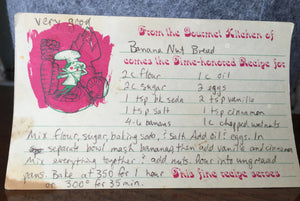 very good
From the Gourmet Kitchen of
Banana Nut Bread
comes the Time-honored Recipe for
2 C flour 1 c oil
2C sugar 2 eggs
1 tsp bk soda 2 tsp vanilla
1 tsp salt 1 tsp cinnamon
4-6 bananas 1 c chopped walnuts
Mix flour, sugar, baking soda, & salt. Add oil & eggs. In
separate bowl mash bananas, then add vanilla and cinnamon
Mix everything together & add nuts. Pour into ungreased
pans. Bake at 350 for 1 hour This fine recipe serves
or 300° for 35 min.